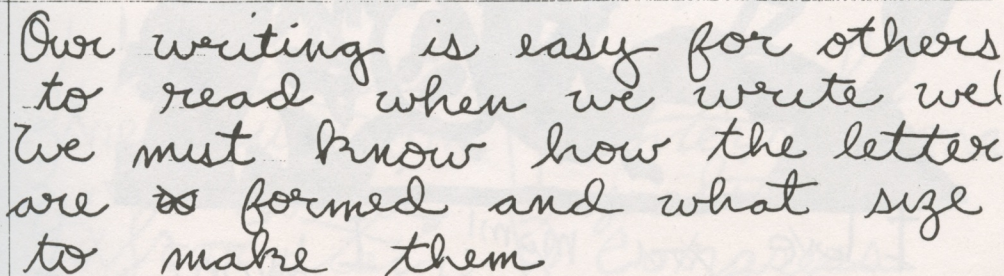 Our writing is easy for others
to read when we write wel
We must know how the letter
are formed and what size
to make them